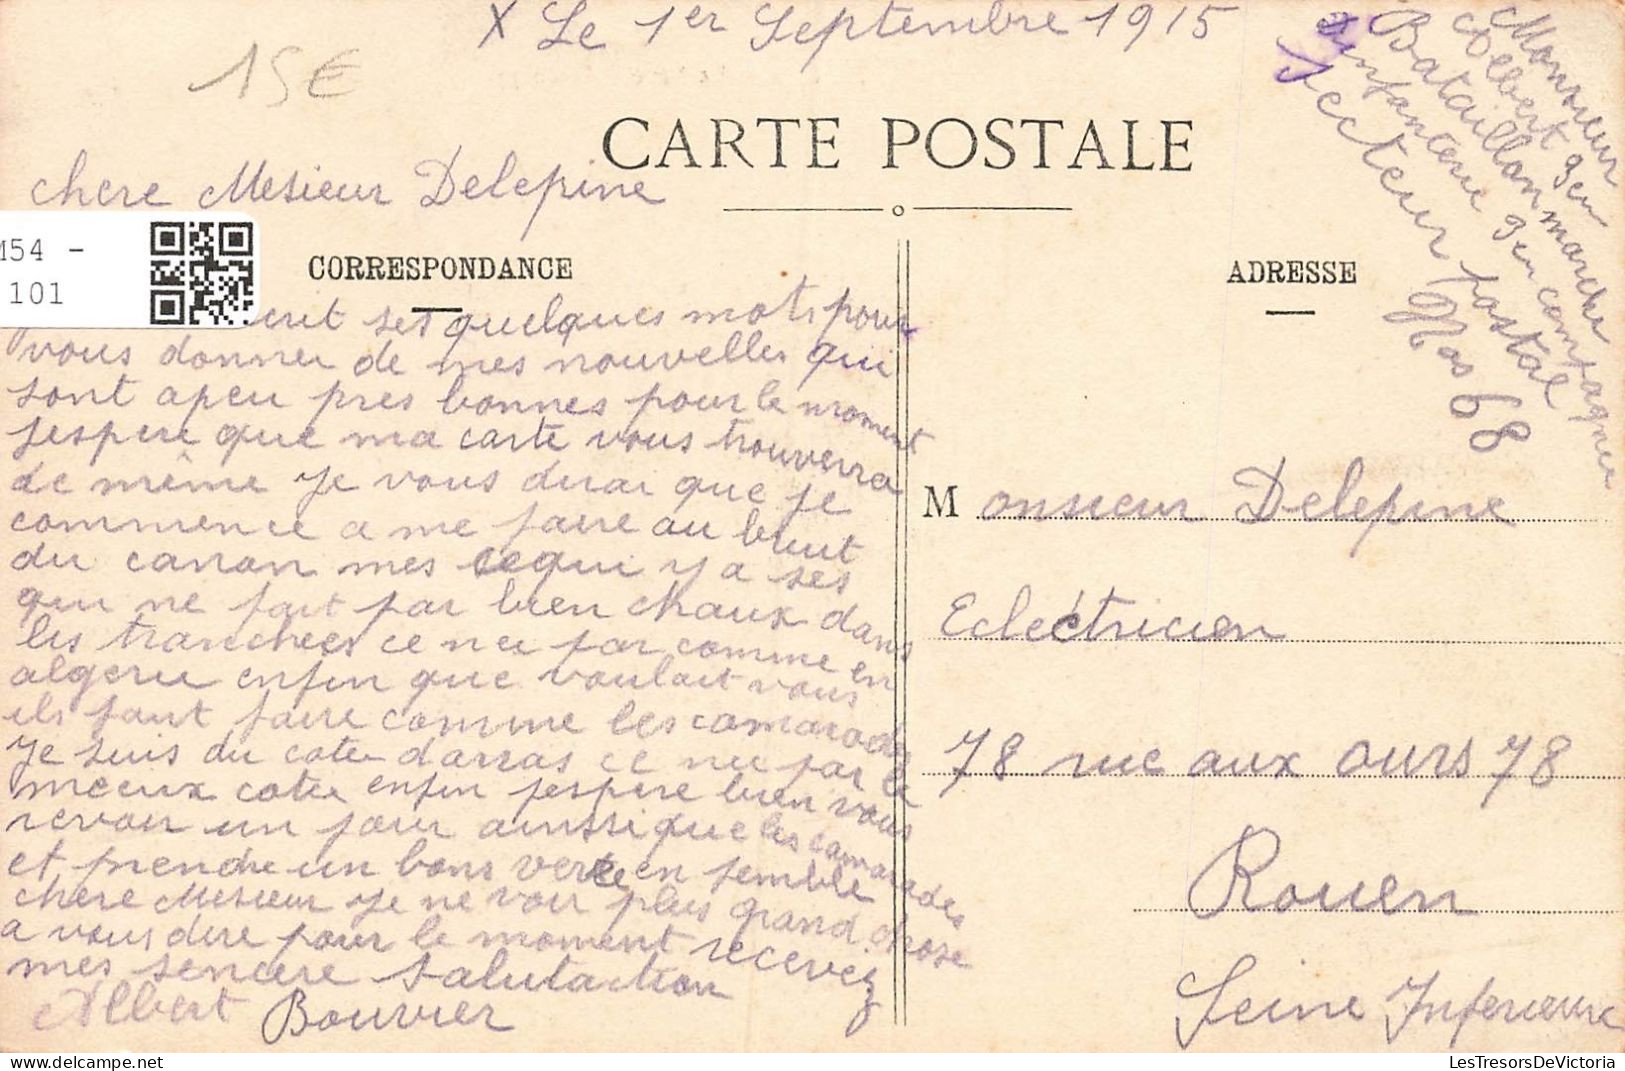 X Le 1er Septembre 1915
15€
CARTE POSTALE
chere Mesieur Delepine
M54 -
101
CORRESPONDANCE
ses quelques mots pour
vous donner de mes nouvelles qui
sont apeu pres bonnes pour le moment
jespere que ma carte vous trouverra
de même Je vous dirai que je
commence a me faire au bruit
du canon mes cequi y a ses
qui ne fait pas bien chaux dans
les tranchees ce nei pas comme en
algerie enfin que voulait vous
ils faut faire comme les camarades
Je suis du coter darras ce nei pas le
mceiux coter enfin jespere bien vous
revoir un jour ainssique les camarades
et prendre un bons verre en semble
chere Mesieur Je ne voir plus grand chose
a vous dire pour le moment recevez
mes sencere Salutaction
Albert Bouvier
Monsieur
3 em
Bataillon marche
infanterie 3 em compagnie
Secteur postal
No 68
ADRESSE
Monsieur Delepine
Eclectricien
78 rue aux ours 78
Rouen
Seine Inferieure
LesTresorsDeVictoria